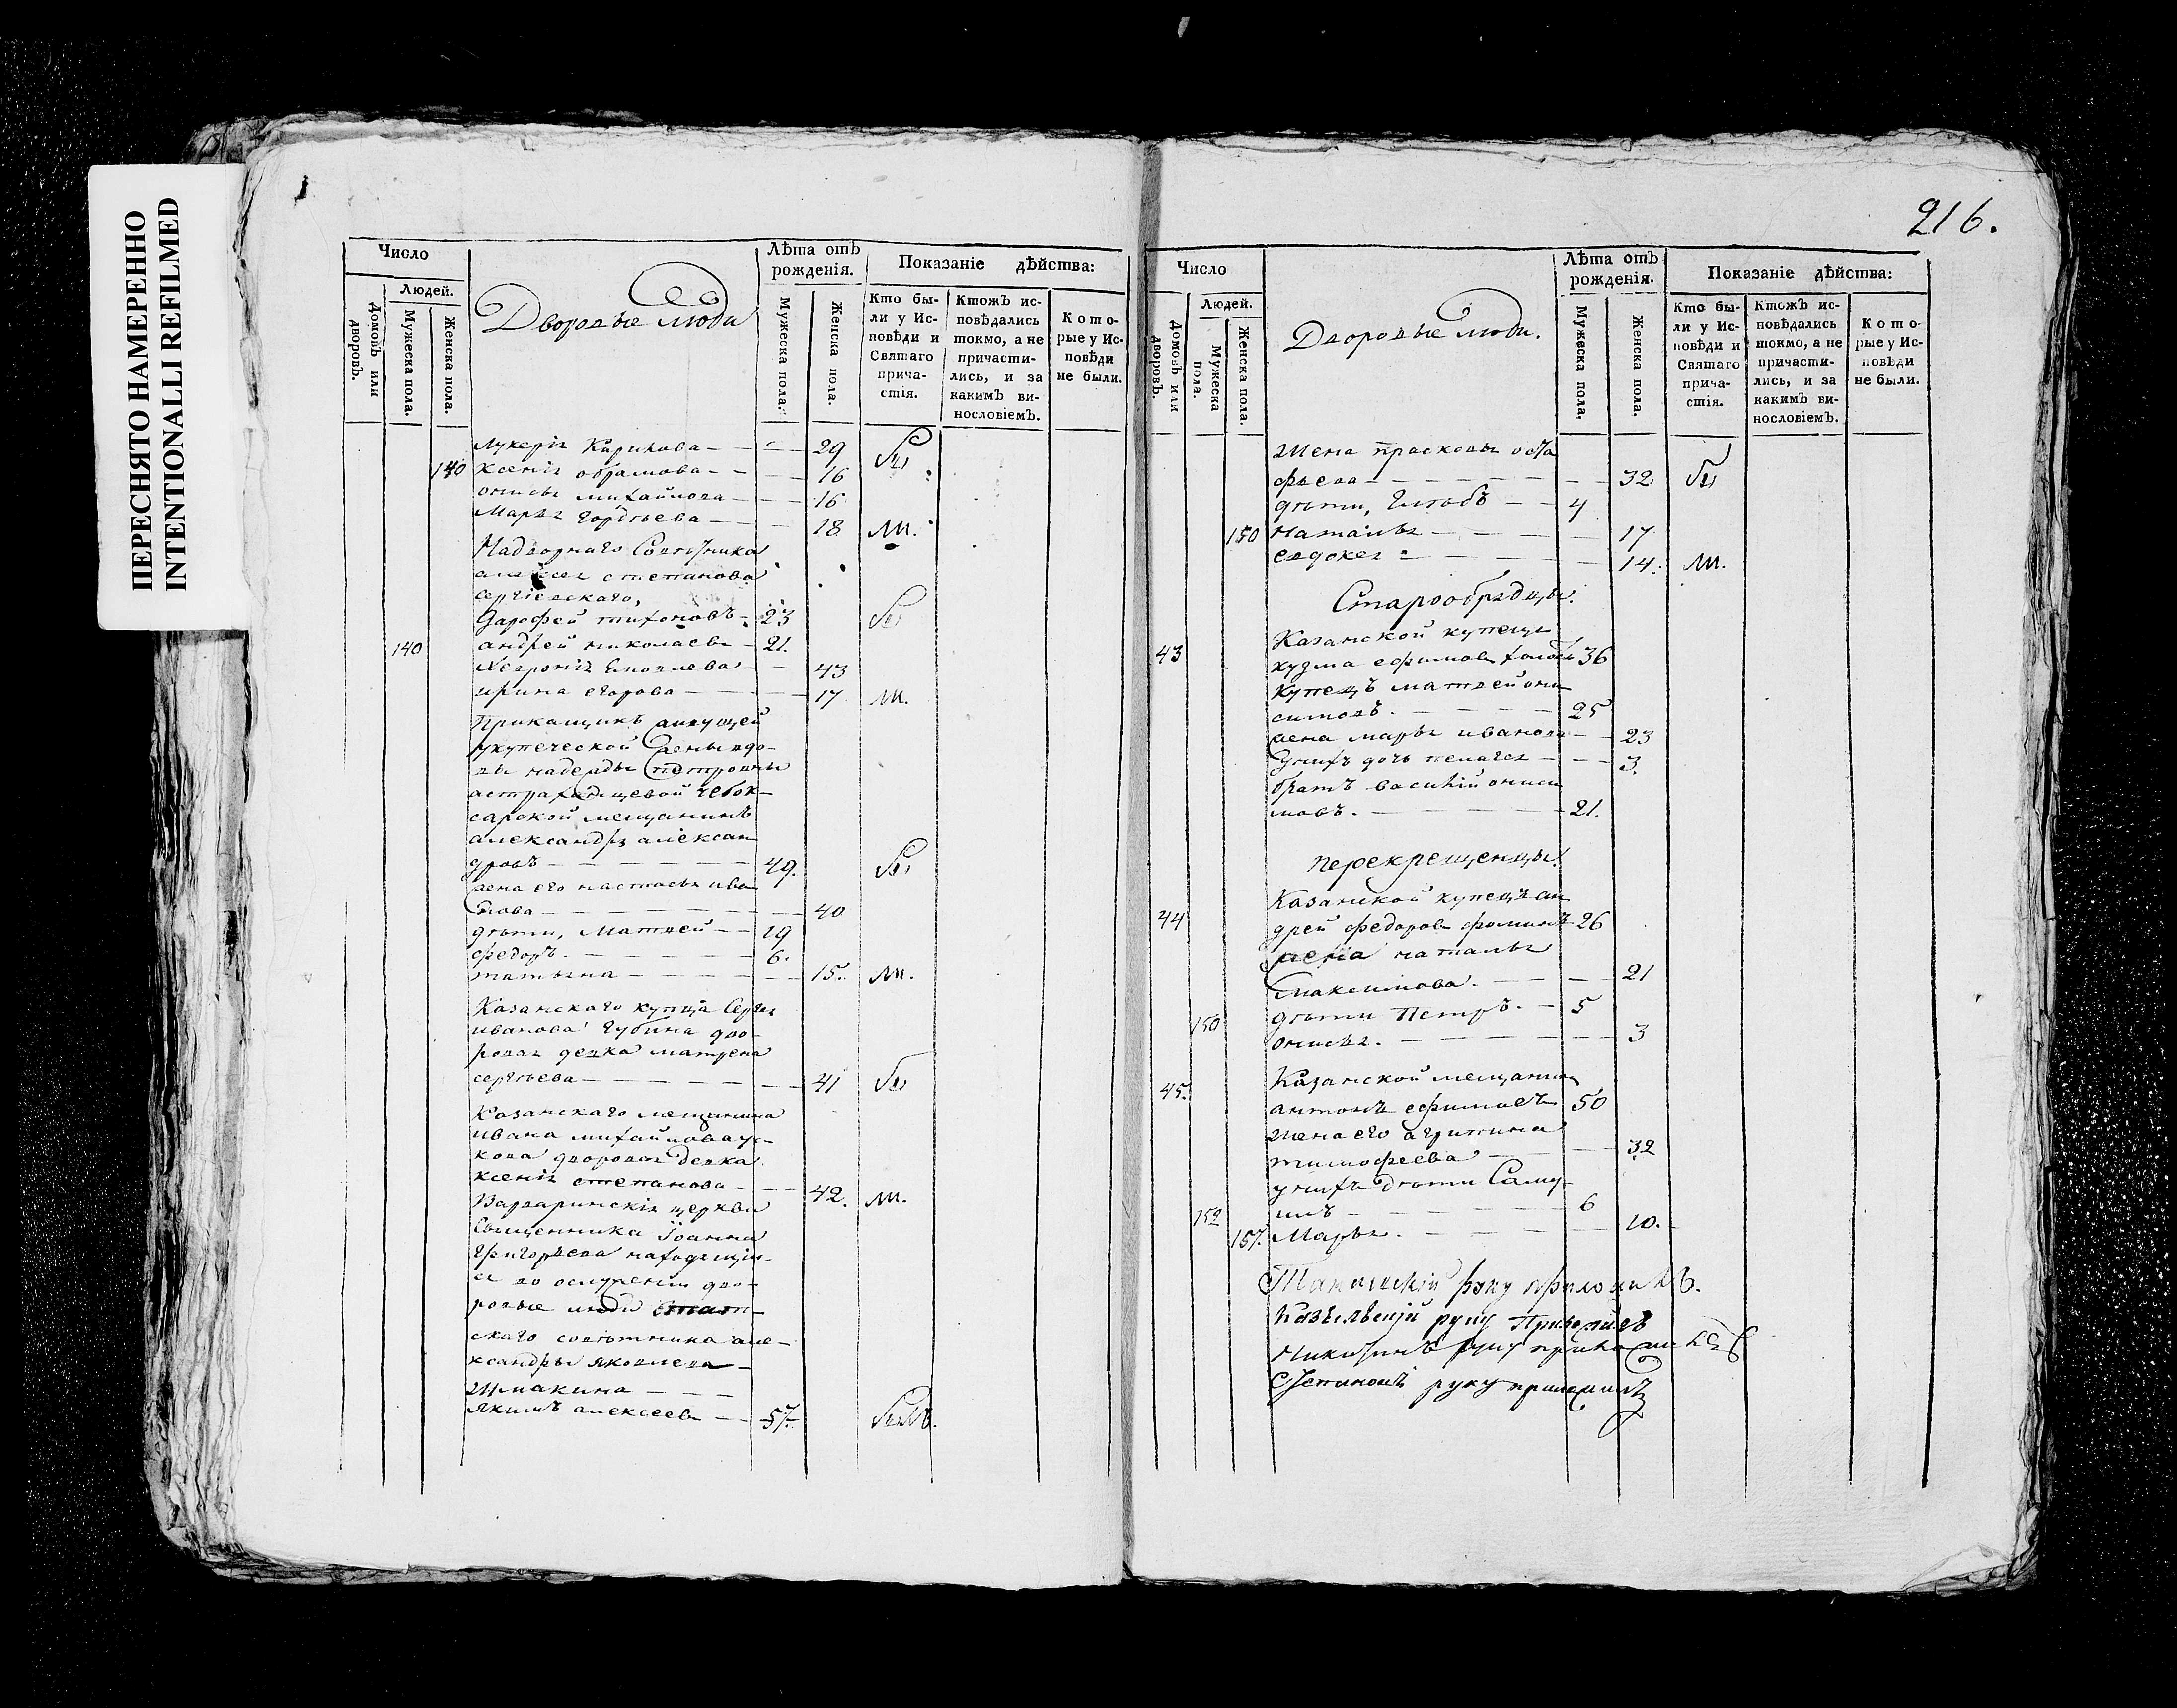 ПЕРЕСНЯТО НАМЕРЕННО
INTENTIONALLI REFILMED
Число
Людей.
Домовъ или дворовъ.
Мужеска пола.
Женска пола.
Дворовые люди
Лѣта отъ рожденія.
Мужеска пола.
Женска пола.
Показаніе дѣйства:
Кто бы-
ли у Ис-
повѣди и
Святаго
прича-
стія.
Ктожъ ис-
повѣдались
токмо, а не
причасти-
лись, и за
какимъ ви-
нословіемъ.
Кото-
рые у Ис-
повѣди
не были.
лукерія Карпкова — 29 бы
140 ксенія обрамова — 16
онисья михайлова — 16
Марья гордѣева — 18 ли.
Надворнаго Совѣтника
алексея степанова
сергіевскаго,
дарофей тихоновъ — 23 бы
140 андрей николаевъ — 21.
Яковлева — 43
ирина егорова — 17 ли.
Прикащикъ живущей
укупеческой жены вдо-
вы надежды петровны
астраханцевой чебок-
сарской мещанинъ
александръ алексан
дровъ — 49. бы
жена его настасья ива
нова — 40
дѣти, Матвей — 19
федоръ. — 6.
татьяна — 15. ли.
Казанскаго купца Сергея
иванова губина дво-
ровая девка матрена
сергѣева — 41 бы
Казанскаго мещанина
ивана михайлова ус-
кова дворовая девка
ксенія степанова — 42. ли.
Варваринскія церкви
Священника Іоанна
григорьева находящіи-
ся во услуженіи дво-
ровые люди Стат-
скаго советника але-
ксандры яковлева
Шмакина —
якимъ алексеевъ — 57. былъ.
216.
Число
Людей.
Домовъ или дворовъ.
Мужеска пола.
Женска пола.
Дворовые люди.
Лѣта отъ рожденія.
Мужеска пола.
Женска пола.
Показаніе дѣйства:
Кто бы-
ли у Ис-
повѣди и
Святаго
прича-
стія.
Ктожъ ис-
повѣдались
токмо, а не
причасти-
лись, и за
какимъ ви-
нословіемъ.
Кото-
рые у Ис-
повѣди
не были.
жена прасковья оста
фьева — 32 бы
дѣти, Глебъ — 4
150 Наталья — 17
евдокея — 14. ли.
Старообрядцы.
Казанской купецъ
43 кузма ефимовъ 36
купецъ матвей они
симовъ. — 25
жена марья иванова — 23
унихъ дочь пелагея — 3.
братъ василій ониси
мовъ. — 21.
перекрещенцы.
Казанской купецъ ан
44 дрей федоровъ фоминъ 26
жена наталья
максимова. — 21
150 дѣти Петръ. — 5
онисья. — 3
Казанской мещанинъ
45. антонъ ефимовъ 50
жена его агрипина
тимофеева — 32
унихъ дѣти Саму-
152 илъ — 6
157. Марья. — 10.
руку приложилъ.
руку Приложилъ
Никитинъ руку приложилъ
Степановъ руку приложилъ